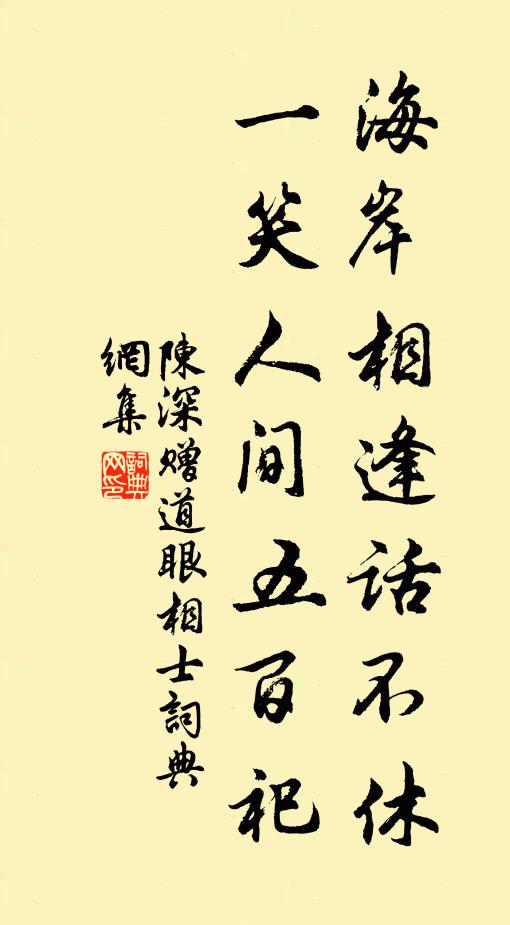 海岸相逢話不休
一笑人间五百祀
陳深贈道眼相士詞典
網集
詞典
网印